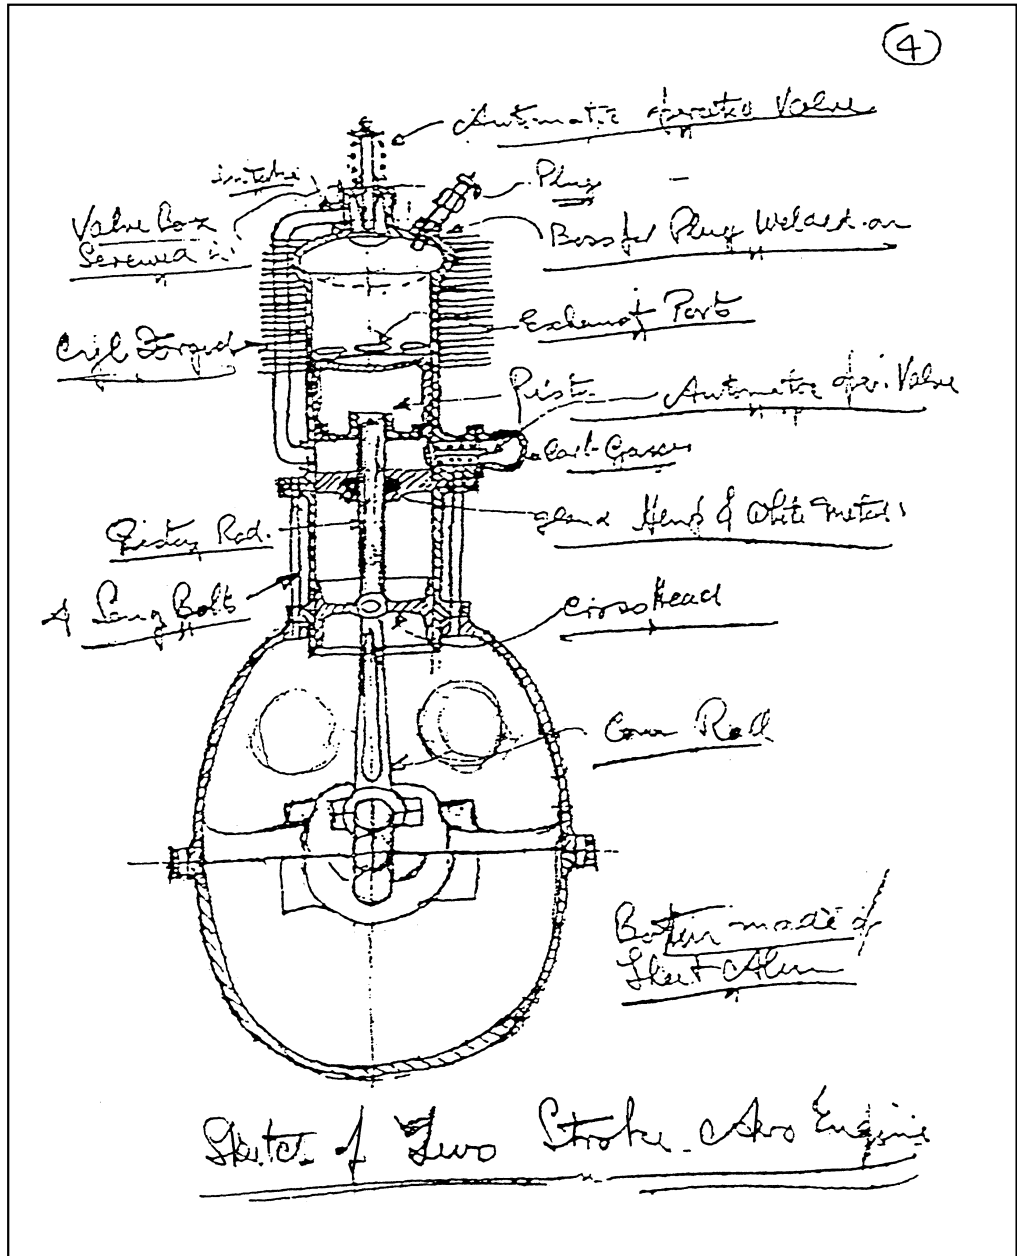 4
Automatic operated Valve
intake
Plug
Valve Box
Screwed in
Boss for Plug Welded on
Exhaust Port
Cyl Forged
Pist.
Automatic oper. Valve
Carb Gasses
gland Hemp & White Metal
Piston Rod.
4 Long Bolts
Cross Head
Conn Rod
Bottom made of
Sheet Alum
Sketch of Two Stroke Avro Engine